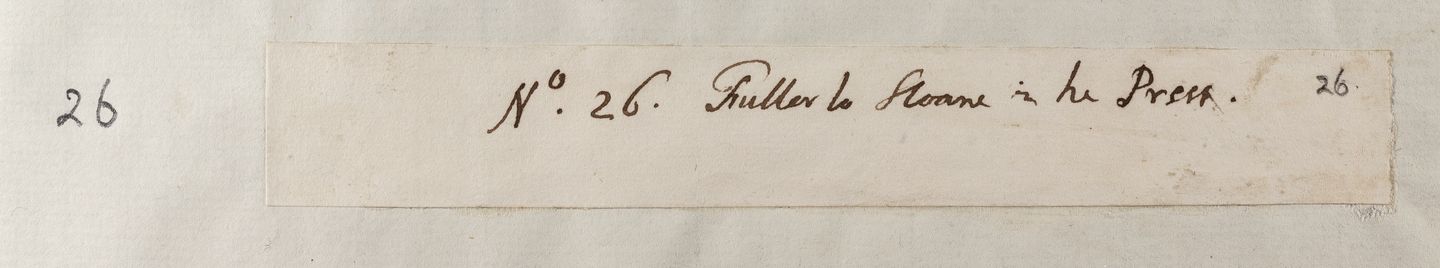 26 Nº. 26. Fuller to Sloane in he Press. 26.